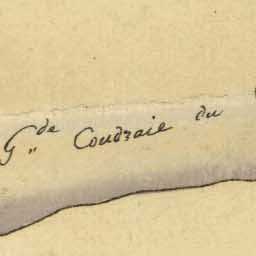 G.de Coudraie du